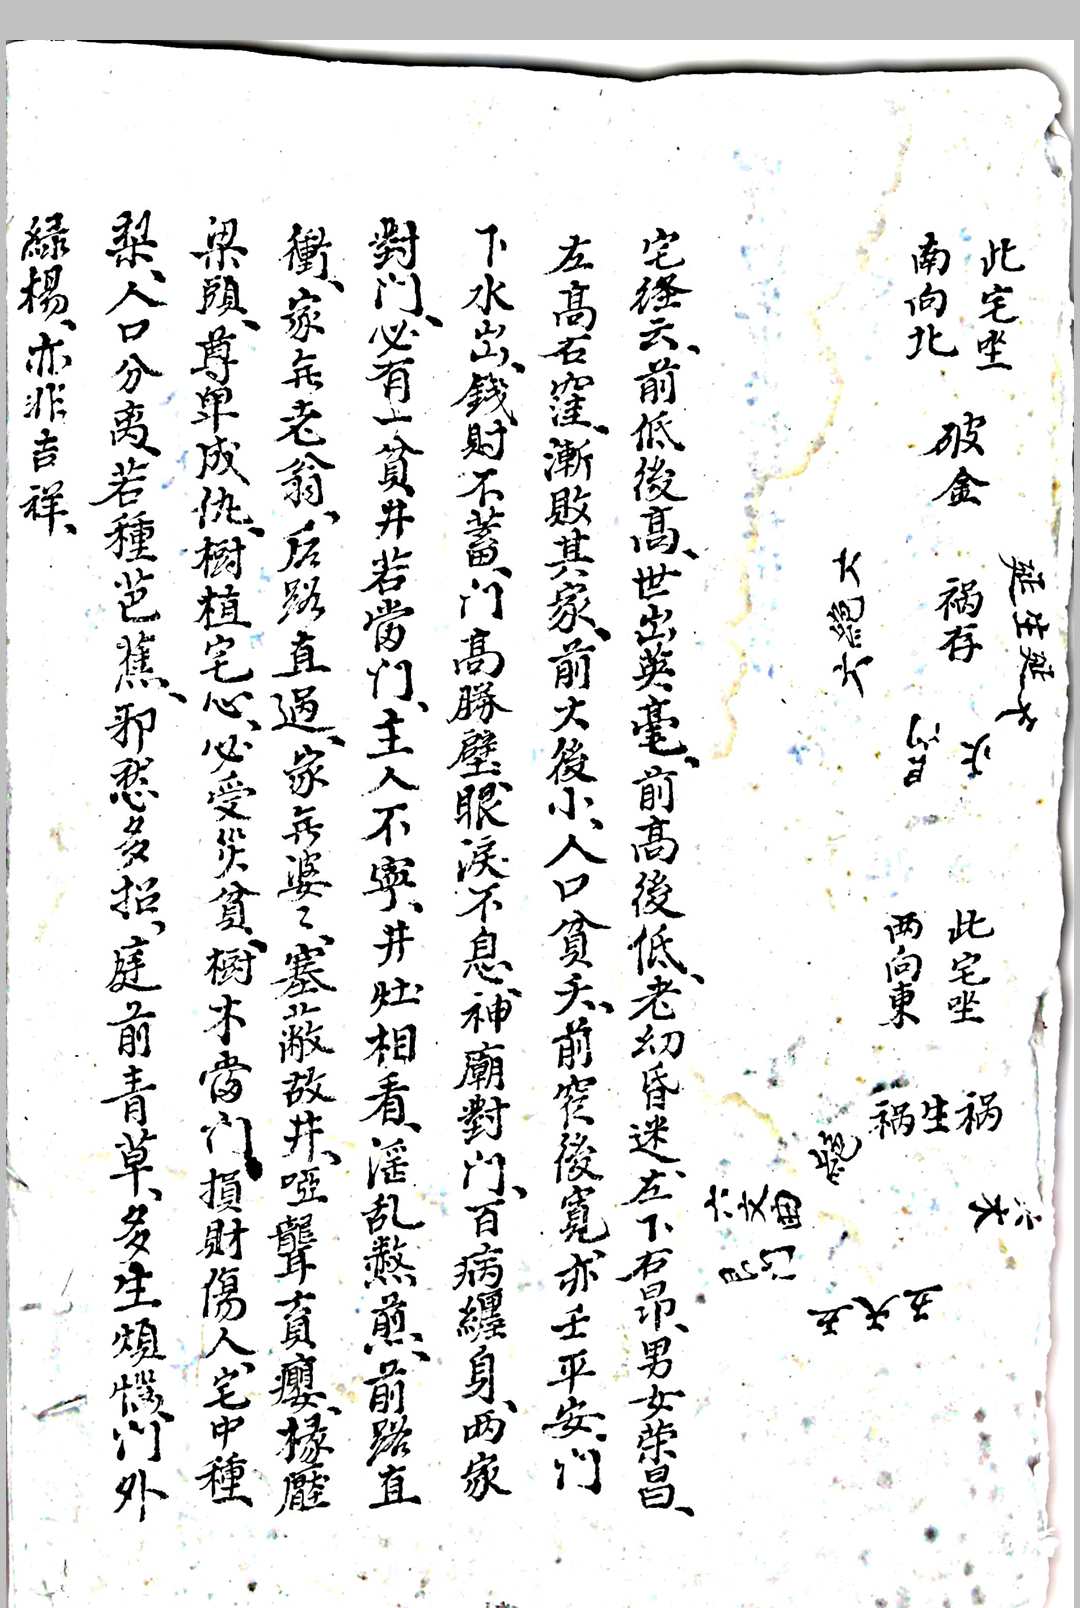 此宅坐
南向北
破金
祸存
延生延
六
大龍
此宅坐
西向東
祸生祸
五天五
宅経云、前低後高、世出英毫、前高後低、老幼昏迷、左下右昂、男女荣昌、
左高右窪、漸敗其家、前大後小、人口貧夭、前窄後寬、亦主平安、门
下水出、錢財不蓄、门高勝壁、眼淚不息、神廟對门、百病纏身、两家
對门、必有一貧、井若當门、主人不寧、井灶相看、淫乱熬煎、前路直
衝、家無老翁、后路直過、家無婆〻、塞蔽故井、啞聾盲癭、椽壓
梁頭、尊卑成仇、樹植宅心、必受災貧、樹木當门、損財傷人、宅中種
梨、人口分离、若種芭蕉、邪愁多招、庭前青草、多生煩惱、门外
緑楊、亦非吉祥、